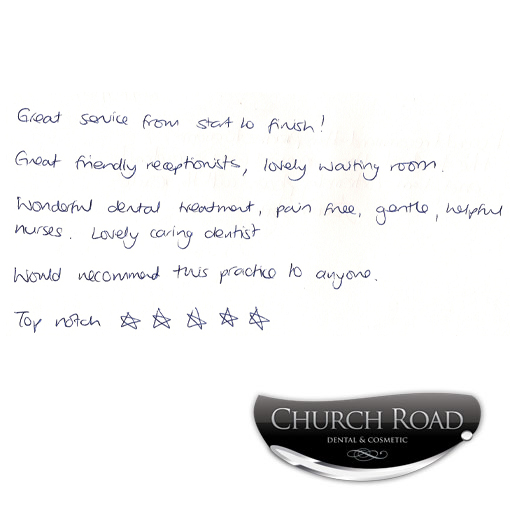 Great service from start to finish!
Great friendly receptionists, lovely waiting room.
Wonderful dental treatment, pain free, gentle, helpful
nurses. Lovely caring dentist
Would recommend this practice to anyone.
Top notch ☆ ☆ ☆ ☆ ☆
CHURCH ROAD
DENTAL & COSMETIC